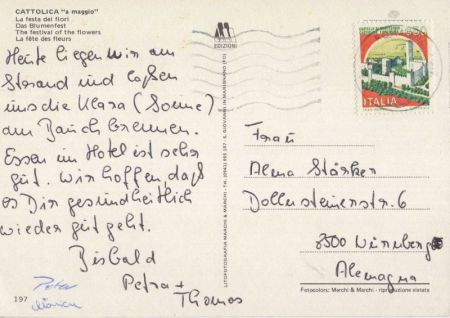 CATTOLICA "a maggio"
La festa dei fiori
Das Blumenfest
The festival of the flowers
La fête des fleurs
EDIZIONI
ITALIA
Heute liegen wir am
Strand und laßen
uns die Klara (Sonne)
am Bauch brennen.
Essen im Hotel ist sehr
gut. Wir hoffen, daß
es Dir gesundheitlich
wieder gut geht.
Bis bald
Petra +
Thomas
Peter
197
LITOFOTOGRAFIA MARCHI & MARCHI
S. GIOVANNI IN MARIGNANO (FO)
Frau
Alma Stärker
Dollnsteinerstr. 6
8500 Nürnberg
Alemagna
Fotocolors: Marchi & Marchi - riproduzione vietata